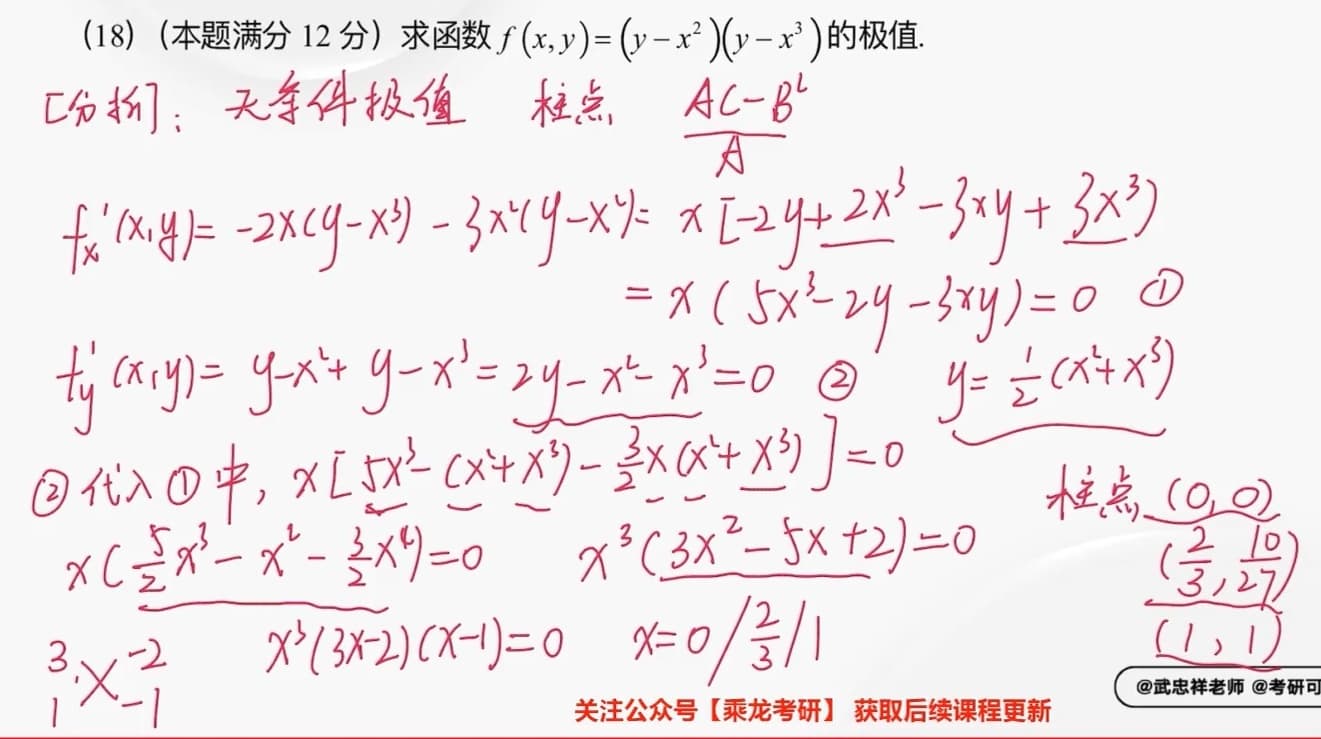 (18)（本题满分 12 分）求函数 f(x,y)=(y-x²)(y-x³)的极值.
[分析]：无条件极值 驻点 AC-B²
A
fₓ'(x,y)= -2x(y-x³) -3x²(y-x²)= x[-2y+2x³-3xy+3x³)
= x(5x³-2y-3xy)=0 ①
f'y(x,y)= y-x²+y-x³=2y-x²-x³=0 ② y=1/2(x²+x³)
②代入①中, x[5x³-(x²+x³)-3/2x(x²+x³)]=0
驻点 (0,0)
x(5/2x³-x²-3/2x⁴)=0 x³(3x²-5x+2)=0
(2/3,10/27)
3 -2 x³(3x-2)(x-1)=0 x=0/2/3/1
(1,1)
1 -1
@武忠祥老师 @考研可
关注公众号【乘龙考研】 获取后续课程更新